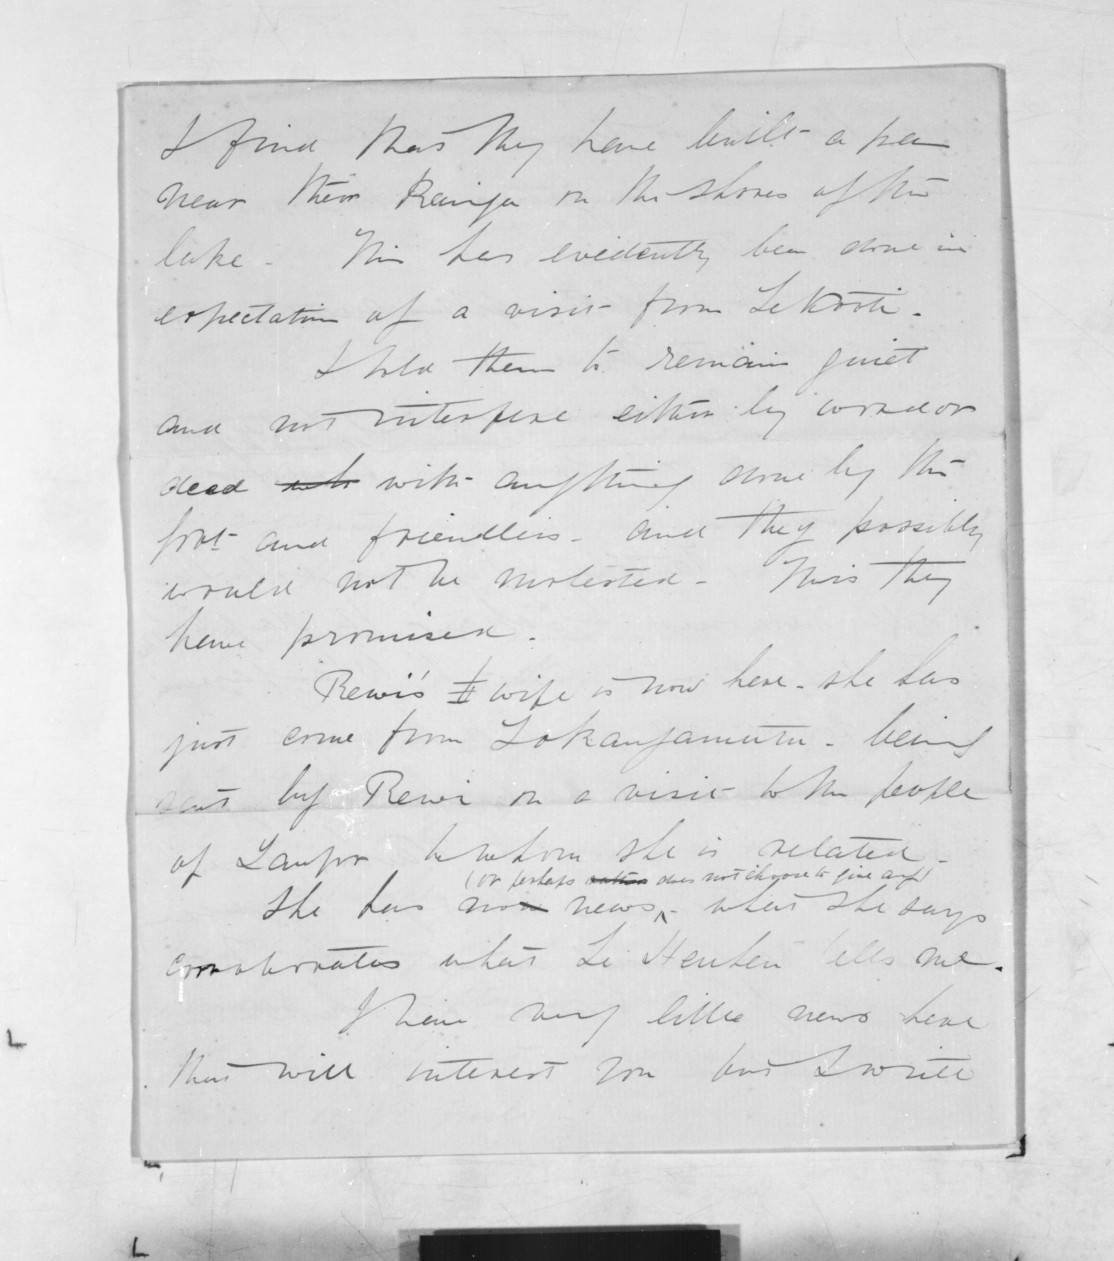 I find that they have built a pa
near their Kainga on the shores of the
lake. This has evidently been done in
expectation of a visit from Te Kooti.
I told them to remain quiet
and not interfere either by word or
deed with anything done by the
Govt and friendlies - and they possibly
would not be molested - This they
have promised.
Rewi's II wife is now here - she has
just come from Tokangamutu - being
sent by Rewi on a visit to the people
of Taupo to whom she is related -
(or perhaps does not choose to give any)
She has no news - what she says
corroborates what Te Heuheu tells me.
I have very little news here
that will interest you but I write